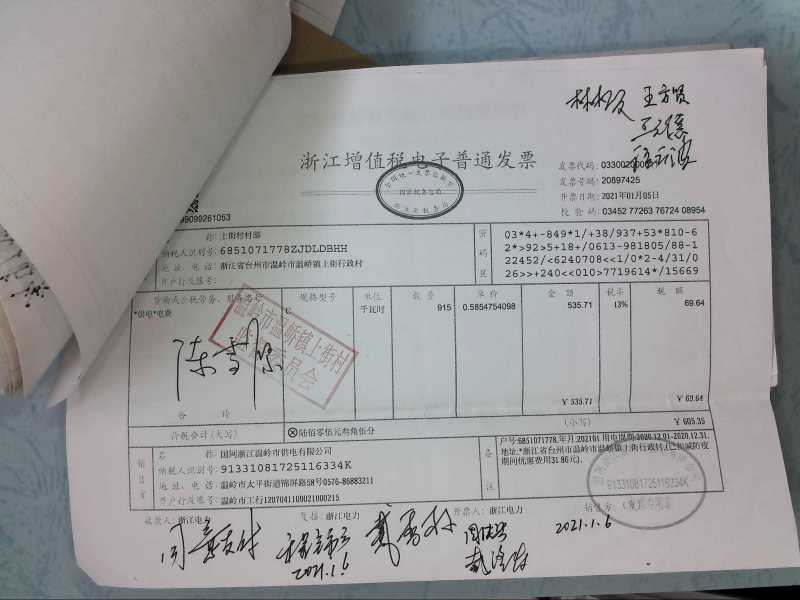 王方贤
浙江增值税电子普通发票
发票代码:
发票号码: 20897425
开票日期: 2021年01月05日
校验码: 03452 77263 76724 08954
99099261053
全国统一发票监制章
国家税务总局
称: 上街村村部
纳税人识别号: 6851071778ZJDLDBHH
地址、电话: 浙江省台州市温岭市温峤镇上街行政村
开户行及账号:
密码区
03*4+-849*1/+38/937+53*810-6
2*>92>5+18+/0613-981805/88-1
22452/<6240708<<1/0*2-4/31/0
26>>+240<<010>7719614*/15669
货物或应税劳务、服务名称 规格型号 单位 数量 单价 金额 税率 税额
*供电*电费 千瓦时 915 0.5854754098 535.71 13% 69.64
温岭市温峤镇上街村
委员会
合计 ¥535.71 ¥69.64
价税合计(大写) ⊗陆佰零伍元叁角伍分 (小写) ¥605.35
销售方
名称: 国网浙江温岭市供电有限公司
纳税人识别号: 91331081725116334K
地址、电话: 温岭市太平街道锦屏路58号0576-86883211
开户行及账号: 温岭市工行1207041109021000215
备注
户号:6851071778,年月:202101 用电周期:2020.12.01-2020.12.31,
地址:*浙江省台州市温岭市温峤镇上街行政村,(已扣减防疫
期间优惠费用31.86元).
91331081725116334K
发票专用章
收款人: 浙江电力 复核: 浙江电力 开票人: 浙江电力 销售方: (章)
2021.1.6
2021.1.6